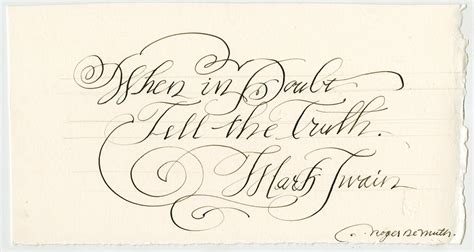 When in Doubt
Tell the Truth.
Mark Twain
Roger DeMuth.